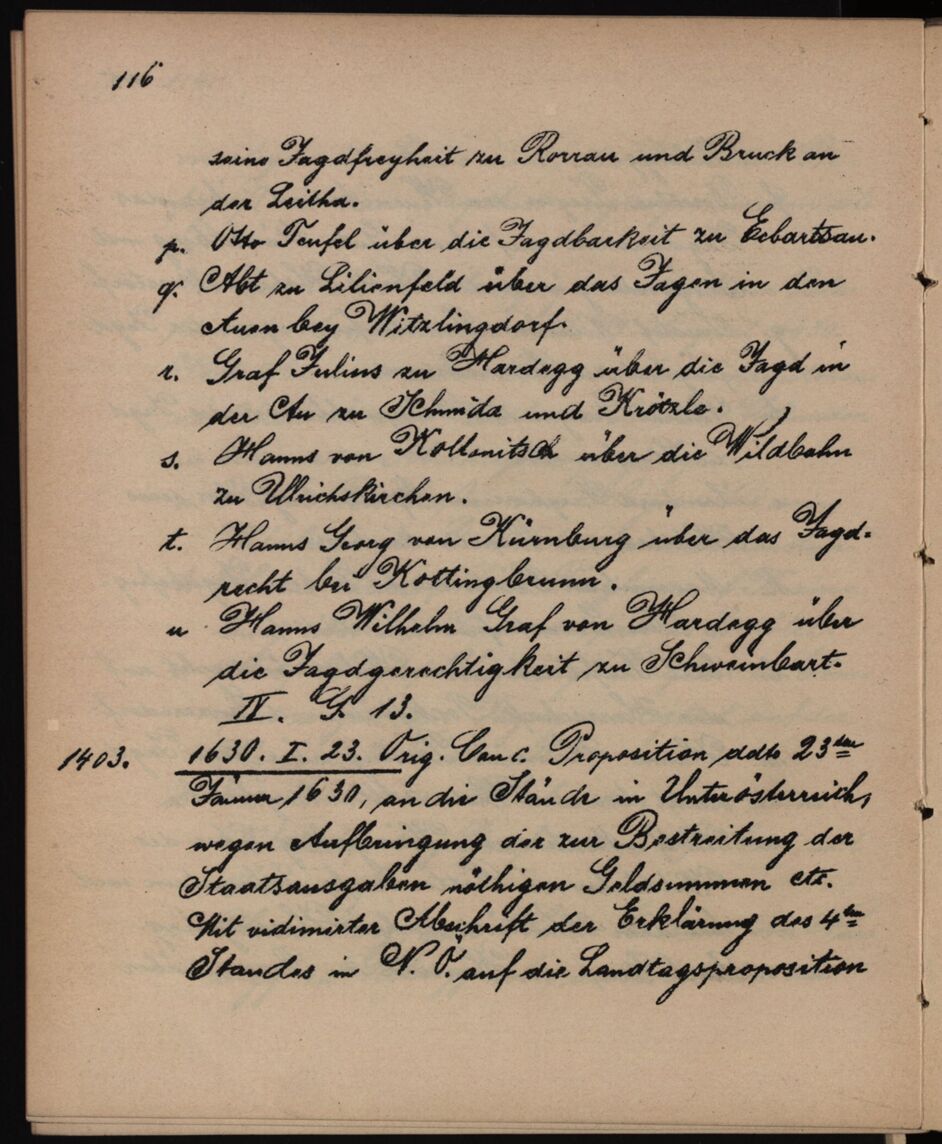 116
seine Jagdfreyheit zu Rorrau und Bruck an
der Leitha.
p. Otto Teufel über die Jagdbarkeit zu Eckartsau.
q. Abt zu Lilienfeld über das Jagen in den
Auen bey Witzlingdorf.
r. Graf Julius zu Hardegg über die Jagd in
der Au zu Schmida und Krötzle.
s. Hanns von Kollonitsch über die Wildbahn
zu Ulrichskirchen.
t. Hanns Georg von Kürnburg über das Jagd-
recht bei Kottingbrunn.
u Hanns Wilhelm Graf von Hardegg über
die Jagdgerechtigkeit zu Schweinbart.
IV. G. 13.
1403. 1630. I. 23. Orig. Conc. Proposition ddto 23ten
Jänner 1630, an die Stände in Unterösterreich,
wegen Aufbringung der zur Bestreitung der
Staatsausgaben nöthigen Geldsummen etc.
Mit vidimirter Abschrift der Erklärung des 4ten
Standes in N. Ö. auf die Landtagsproposition